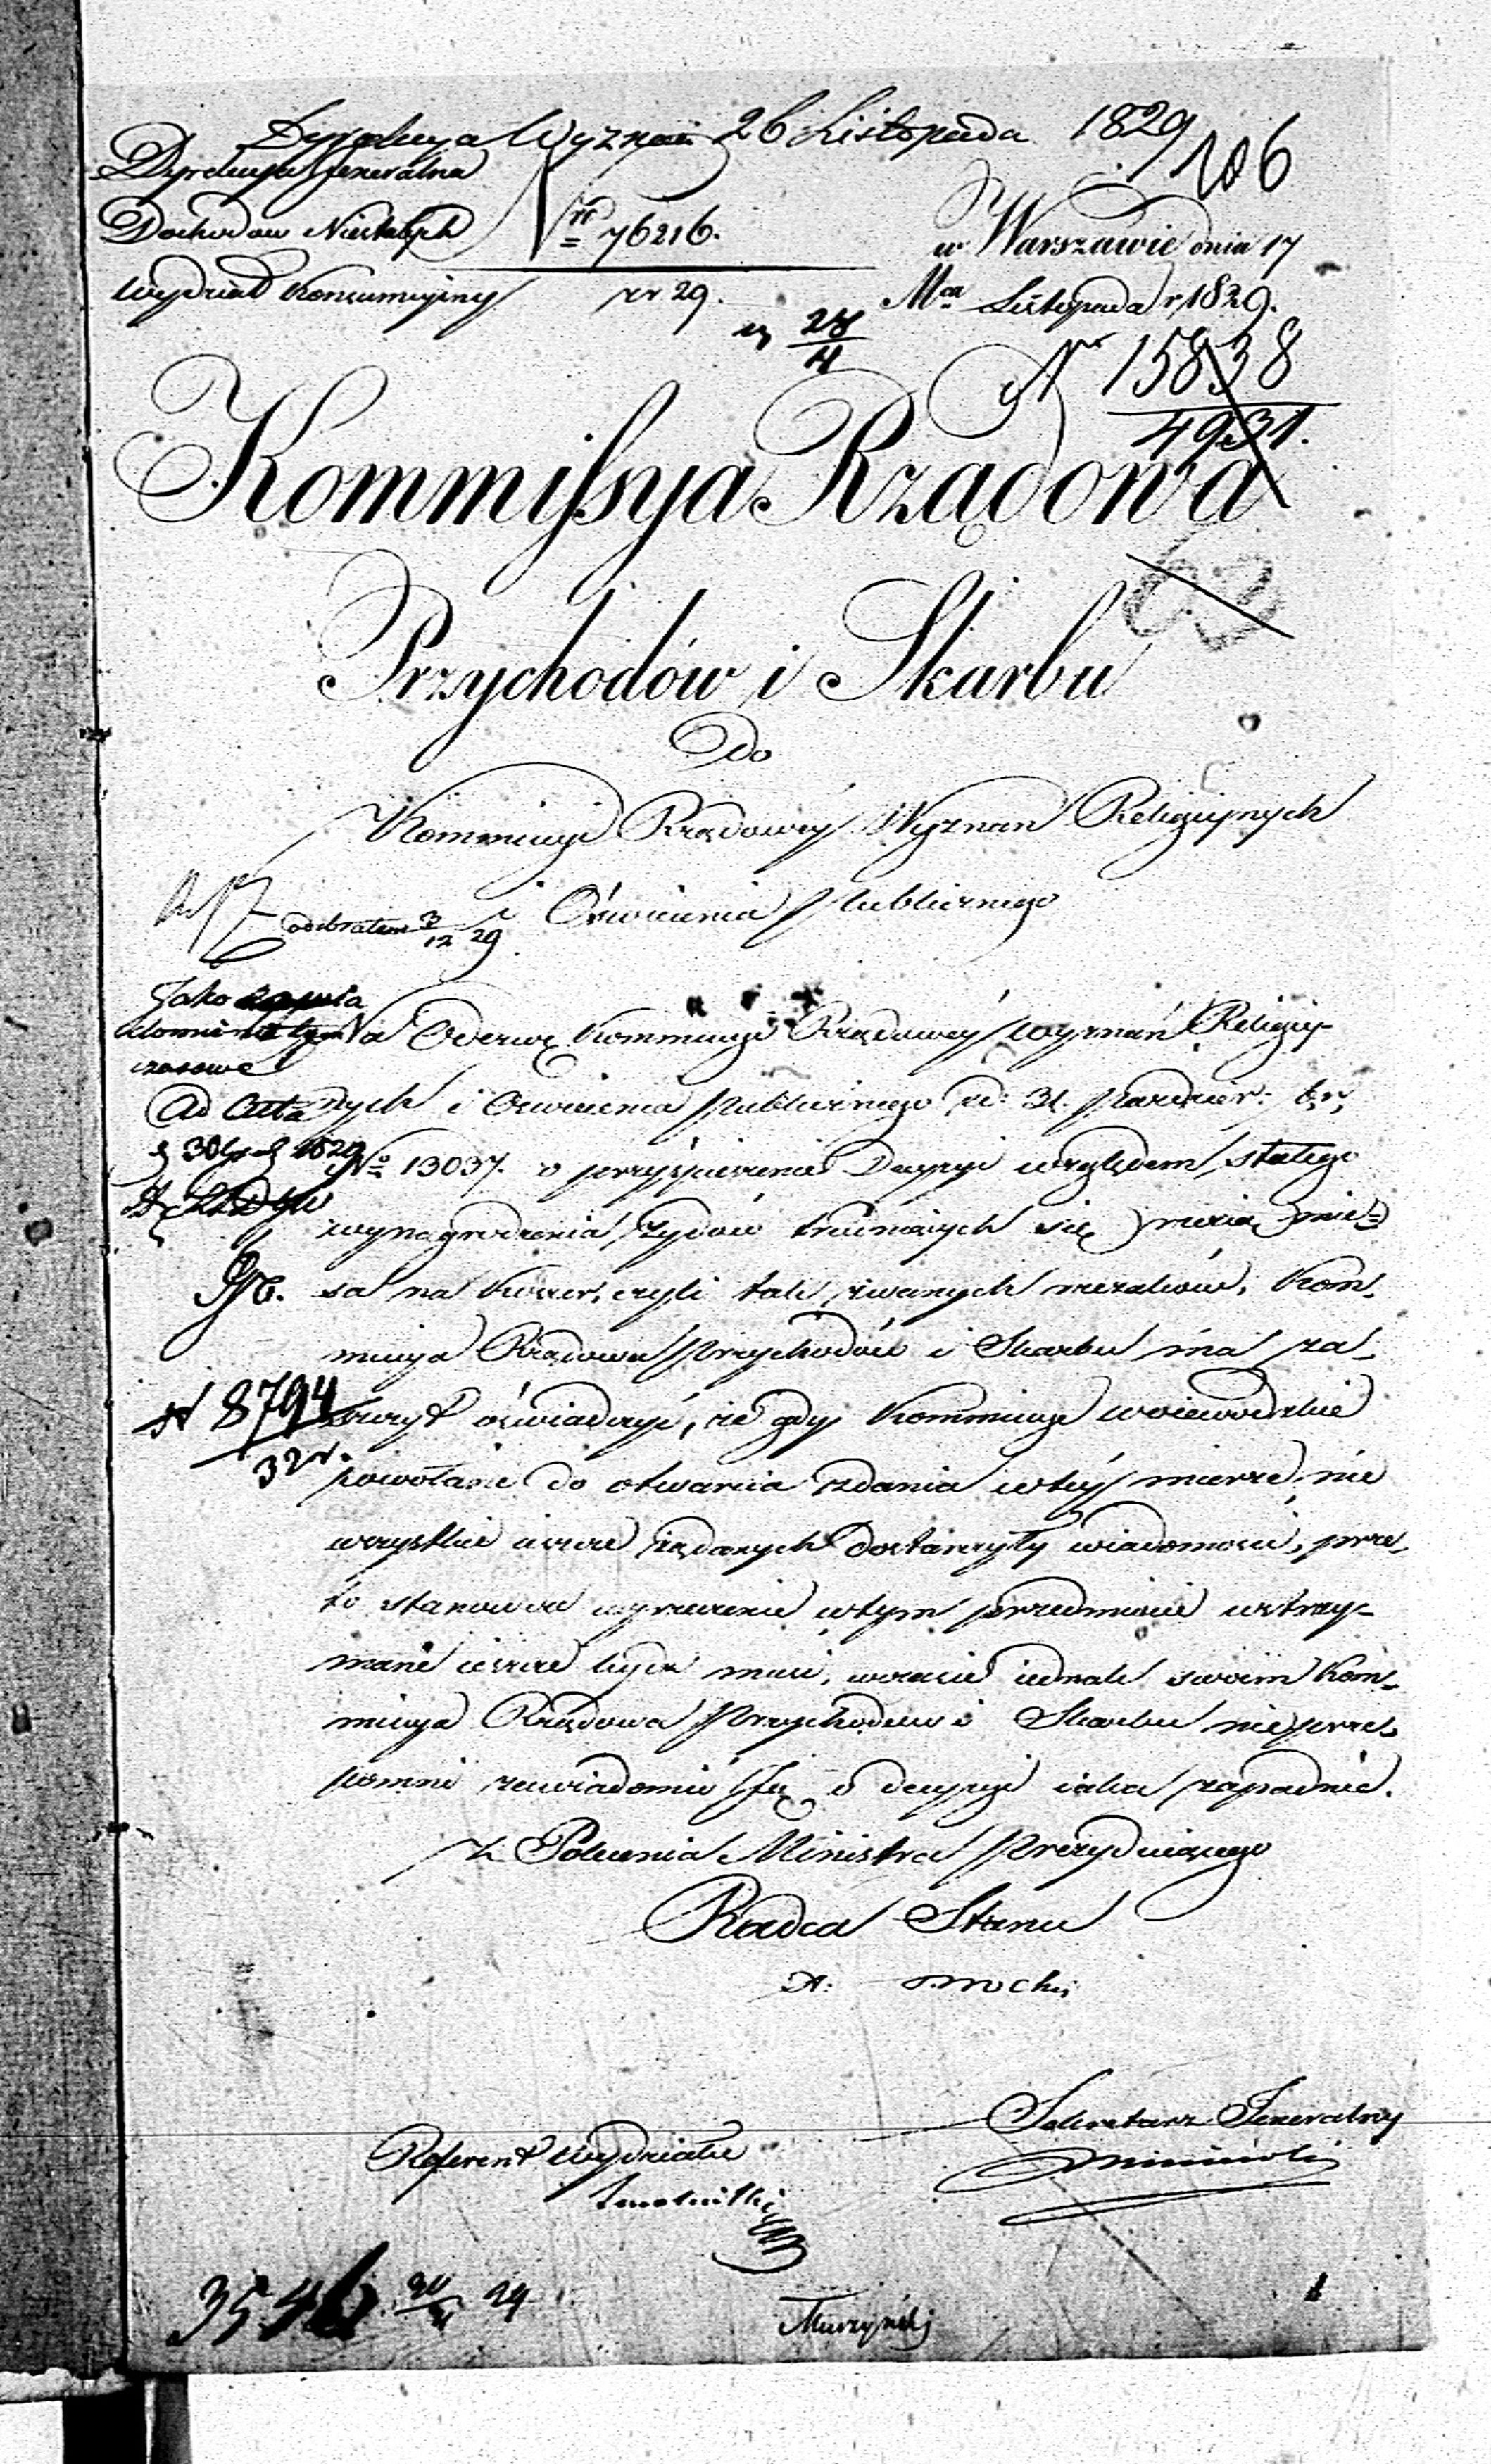 Dyrekcya Wyznań 26 Listopada 1829
106
Dyrekcya Jeneralna
Dochodow Niestałych Nro 76216.
w Warszawie dnia 17
Wydział Konsumcyjny rr 29.
Mca Listopada r. 1829.
Nr 15838
4931.
Kommissya Rządowa
Przychodów i Skarbu
Do
Kommissyi Rządowey Wyznań Religiynych
i Oświecenia Publicznego
odebrałem 3/12 29
Jako
czasowe
Na Odezwę Kommissyi Rządowey Wyznań Religiy-
Ad Acta
nych i Oświecenia Publicznego z d: 31. Paździer: b.r.
No 13037. o przyśpieszenie Decyzyi względem stałego
wynagrodzenia Żydów trudniących się rzezią mię-
sa na koszer, czyli tak zwanych rzezaków, Kom-
missya Rządowa Przychodów i Skarbu ma za-
N 8794
szczyt oświadczyć, że gdy Kommissye woiewodzkie
32 r.
powołane do otwarcia zdania w tey mierze, nie
wszystkie ieszcze żądanych dostarczyły wiadomości, prze-
to stanowcze wyrzeczenie w tym przedmiocie wstrzy-
mane ieszcze bydź musi, w czasie iednak swoim Kom-
missya Rządowa Przychodów i Skarbu nieprze-
pomni zawiadomić Ją o decyzyi iaka zapadnie.
Z Polecenia Ministra Prezyduiącego
Radca Stanu
Sekretarz Jeneralny
Referent Wydziału
3546
Murzyński